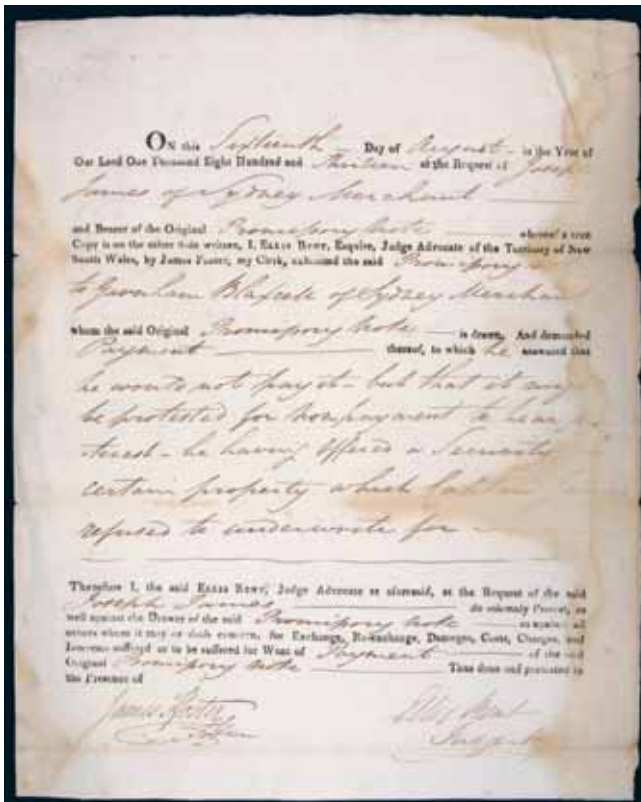 ON this Sixteenth Day of August in the Year of
Our Lord One Thousand Eight Hundred and Thirteen at the Request of Joseph
James of Sydney Merchant
and Bearer of the Original Promissory Note whereof a true
Copy is on the other side written, I, ELLIS BENT, Esquire, Judge Advocate of the Territory of New
South Wales, by James Foster, my Clerk, exhibited the said Promissory
to Gresham Blaxcell of Sydney Merchan
whom the said Original Promissory Note is drawn, And demanded
Payment thereof, to which he answered that
he would not pay it but that it might
be protested for nonpayment to bear
terest he having offered a Security
certain property which
refused to underwrite for
Therefore I, the said ELLIS BENT, Judge Advocate as aforesaid, at the Request of the said
Joseph James do solemnly Protest, as
well against the Drawer of the said Promissory Note as against all
others whom it may or doth concern, for Exchange, Re-exchange, Damages, Costs, Charges, and
Interest suffered or to be suffered for Want of Payment of the said
Original Promissory Note Thus done and protested in
the Presence of
James Foster Ellis Bent